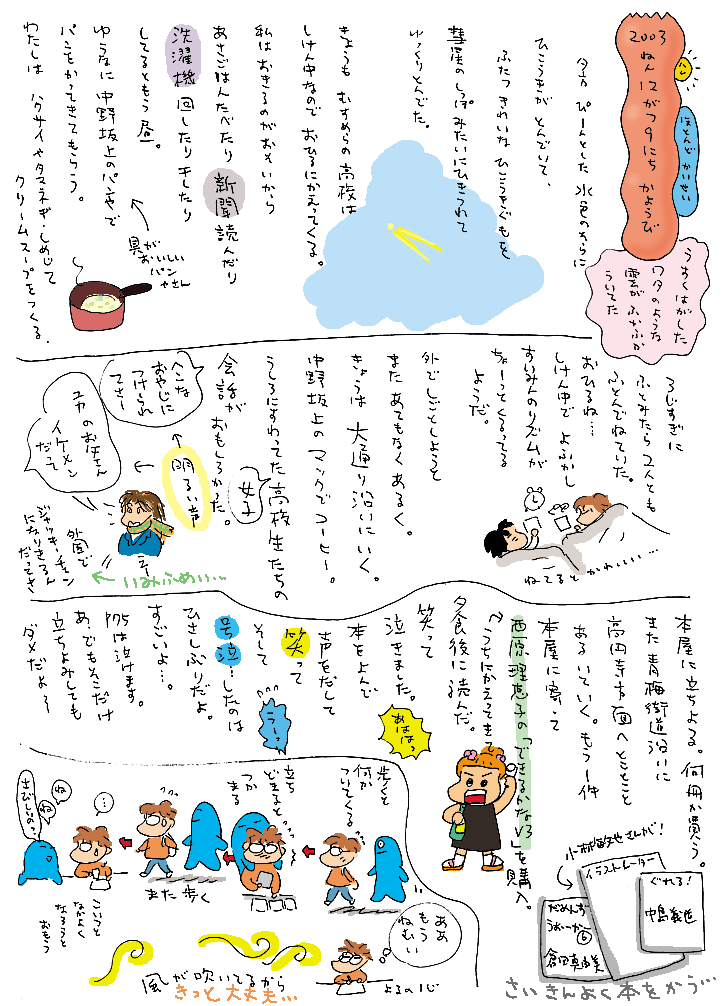 2003
ねん 12がつ9にち かようび
ハレ
ほとんど かいせい
うすくはがした
ワタのような
雲が ふかふか
ういてた
夕方 ぴーんとした 水色のそらに
ひこうきが とんでいて、
ふたつ きれいな ひこうきぐもを
彗星の しっぽみたいにひきつれて
ゆっくりとんでた。
きょうも むすめらの 高校は
しけん中なので おひるにかえってくる。
私は おきるのがおそいから
あさごはんたべたり 新聞 読んだり
洗濯機 回したり 干したり
してるともう 昼。
ゆうがたに 中野坂上のパンやで
パンをかってきてもらう。
わたしは ハクサイやタマネギ・しめじで
クリームスープをつくる。
具が
おいしい
パン
やさん
3じすぎに
ふとみたら 2人とも
ふとんでねていた。
おひるね…
しけん中で よふかし
すいみんのリズムが
ちょーっとくるってる
ようだ。
ねてるとかわいい…
外でしごとしようと
また あてもなく あるく。
きょうは 大通り沿いにいく。
中野坂上の マックでコーヒー。
うしろにすわってた 高校生たちの
女子
会話が おもしろかった。
明るい声
へんな
おやじに
つけられ
てさー
ユカのお兄さん
イケメン
だって
外国で
ジャッキーチェン
になりきるん
だってさ
いみふめい…
本屋に立ちよる。何冊か買う。
また 青梅街道沿いに
高円寺方面へとことこ
あるいていく。もう1件
本屋に寄って
西原理恵子の「できるかなV3」を購入。
うちにかえってきて
夕食後に読んだ。
笑って
泣きました。
本をよんで
声をだして
笑って
そして
号泣…したのは
ひさしぶりだよ。
すごいよ…。
P75は泣けます。
あ、でもそこだけ
立ちよみしても
ダメだよ〜
あははっ
うーっ
小林敏也さんが!
イラストレーター
ぐれる!
中島義道
だめんず
うぉーかー
⑥
倉田真由美
さいきんよく本をかう…
歩くと
何か
ついてくる
立ち
どまると
つか
まる
また歩く
…
ね
ね
ね
さびしいの?
こいつと
なかよく
なろうと
おもう
ああ
もう
ねむい
よるの1じ
風が吹いてるから
きっと大丈夫…